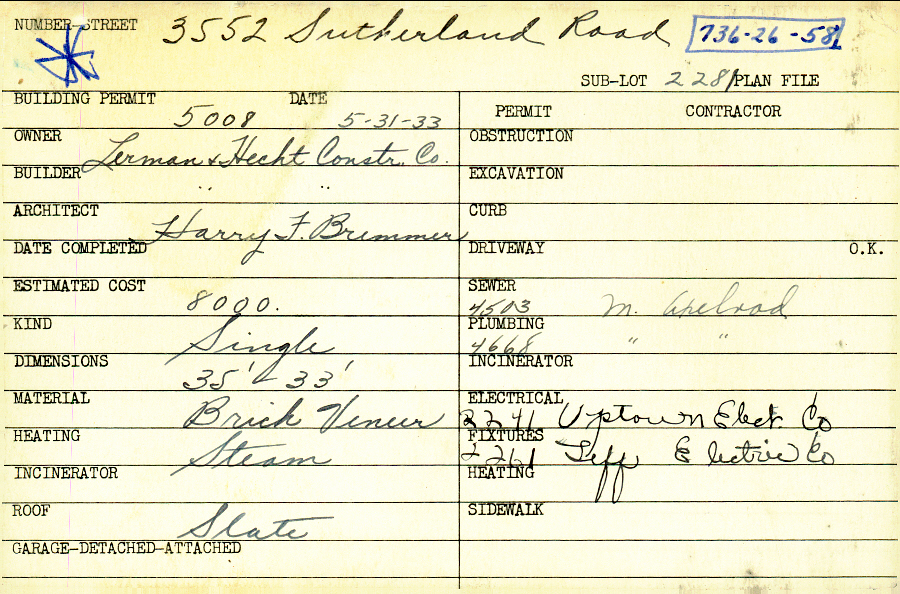 NUMBER-STREET 3552 Sutherland Road 736-26-58
SUB-LOT 2281 PLAN FILE
BUILDING PERMIT 5008 DATE 5-31-33
OWNER Lerman & Hecht Constr. Co.
BUILDER " "
ARCHITECT Harry F. Bremmer
DATE COMPLETED
ESTIMATED COST 8000.
KIND Single
DIMENSIONS 35' - 33'
MATERIAL Brick Veneer
HEATING Steam
INCINERATOR
ROOF Slate
GARAGE-DETACHED-ATTACHED
PERMIT CONTRACTOR
OBSTRUCTION
EXCAVATION
CURB
DRIVEWAY O.K.
SEWER 4503 M. Axelrod
PLUMBING 4668 " "
INCINERATOR
ELECTRICAL 2241 Uptown Elect Co
FIXTURES 2261 Jeff Electric Co
HEATING
SIDEWALK